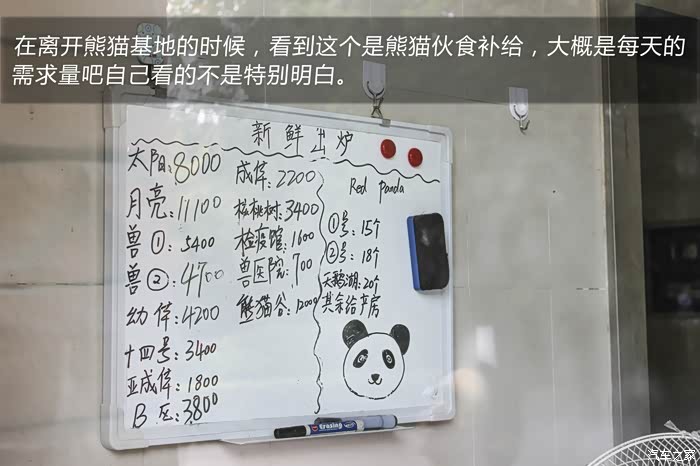 在离开熊猫基地的时候，看到这个是熊猫伙食补给，大概是每天的
需求量吧自己看的不是特别明白。
新鲜出炉
太阳:8000
月亮:11100
兽①:5400
兽②:4700
幼体:4200
十四号:3400
亚成体:1800
B区:3800
成体:2200
核桃树:3400
检疫馆:1600
兽医院:700
熊猫谷:12000
Red panda
①号:15个
②号:18个
天鹅湖:20个
其余给产房
Erasing
汽车之家